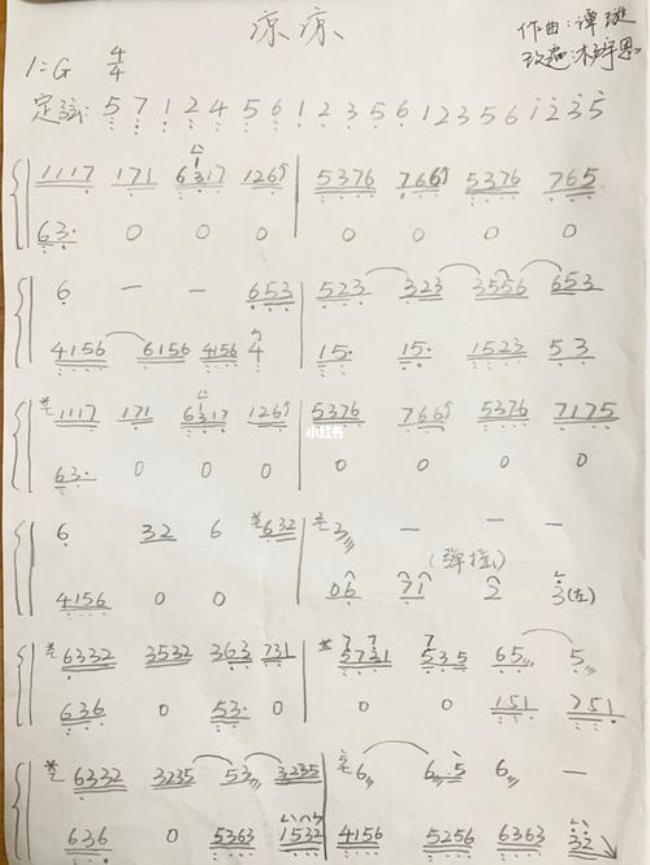 凉凉
作曲:谭璇
1=G 4/4
定弦: 5 7 1 2 4 5 6 1 2 3 5 6 1 2 3 5 6 1 2 3 5
1117 171 6317 126 5376 766 5376 765
63· 0 0 0 0 0 0 0
6 — — 653 523 323 3556 653
4156 6156 4156 4 15· 15· 1523 53
1117 171 6317 126 5376 766 5376 7175
63· 0 0 0 0 0 0 0
小红书
6 32 6 632 3 — — —
(弹摇)
4156 0 0 06 71 2 3(左)
6332 3532 363 731 5731 535 65 5
636 0 53· 0 0 0 151 751
6332 3235 53 3235 6 6·5 6 —
636 0 5363 1532 4156 5256 6363 32